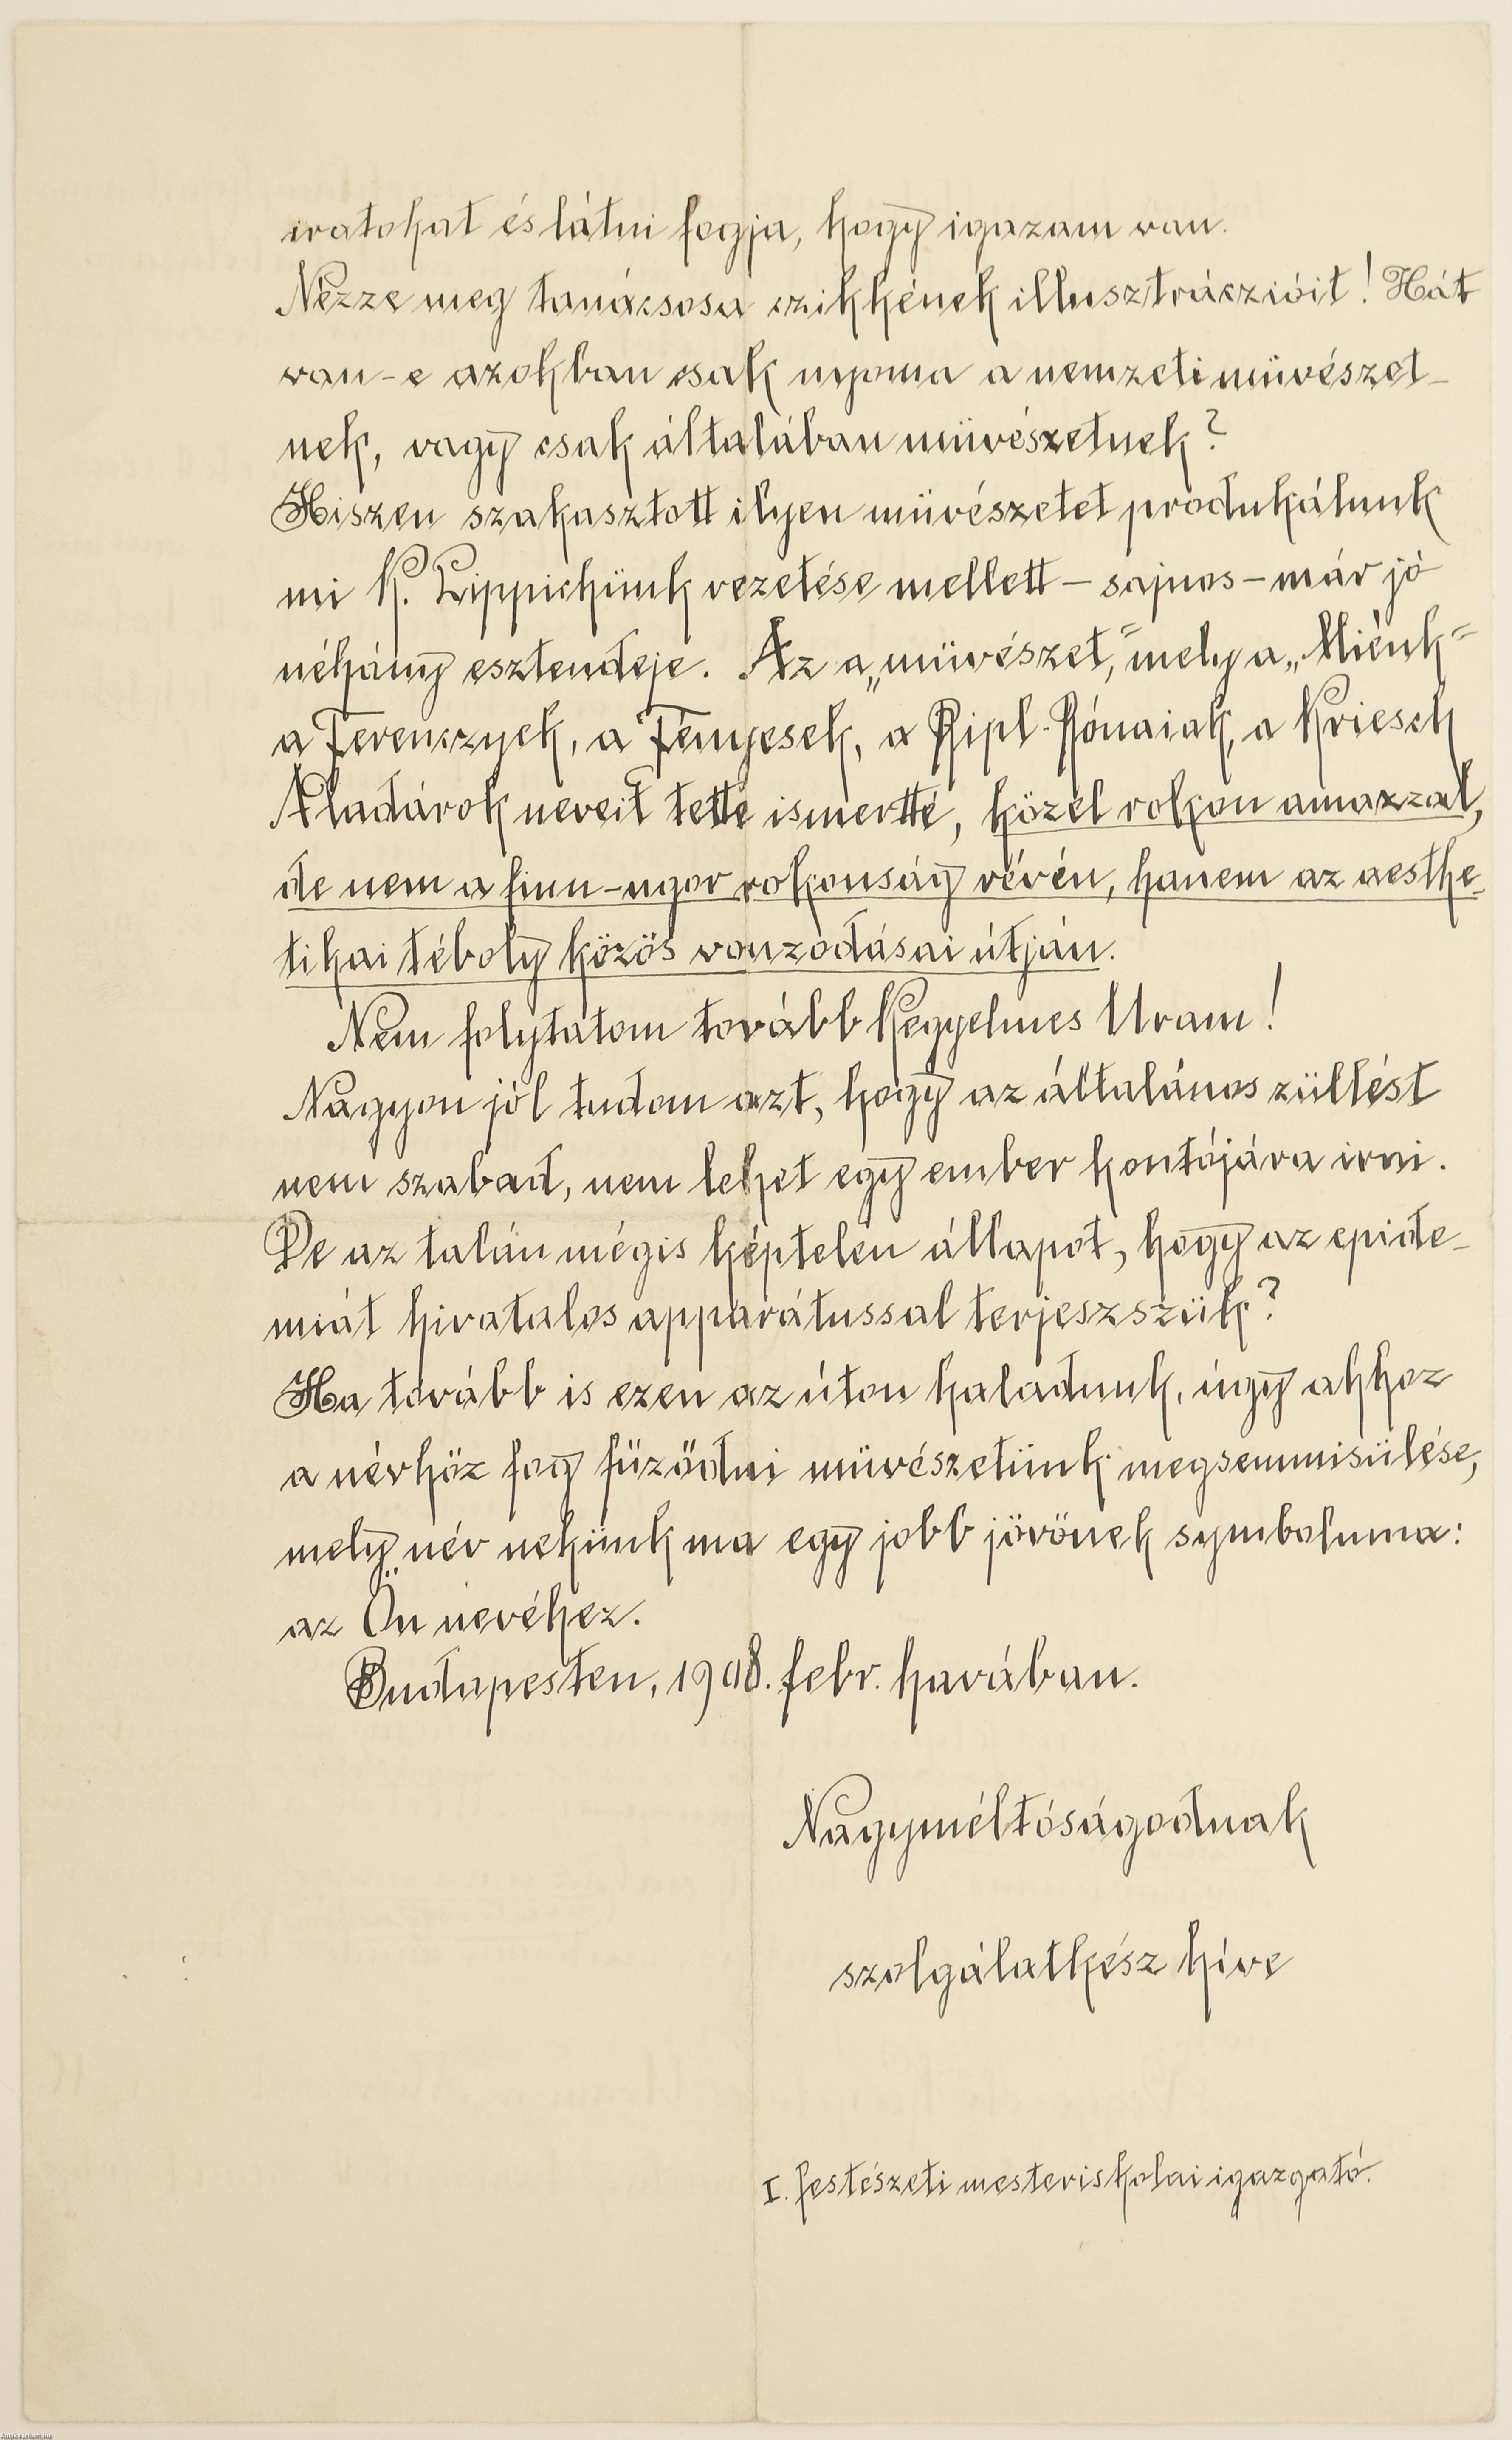 iratokat és látni fogja, hogy igazam van.
Nézze meg tanácsosa czikkének illusztráczióit! Hát
van-e azokban csak nyoma a nemzeti müvészet-
nek, vagy csak általában müvészetnek?
Hiszen szakasztott ilyen müvészetet produkálunk
mi K. Lippichünk vezetése mellett – sajnos – már jó
néhány esztendeje. Az a „müvészet," mely a „Miénk"
a Ferenczyek, a Fényesek, a Ripl-Rónaiak, a Kriesch
Aladárok neveit tette ismertté, közel rokon amazzal,
de nem a finn-ugor rokonság révén, hanem az aesthe-
tikai téboly közös vonzódásai útján.
Nem folytatom tovább Kegyelmes Uram!
Nagyon jól tudom azt, hogy az általános züllést
nem szabad, nem lehet egy ember kontójára irni.
De az talán mégis képtelen állapot, hogy az epide-
miát hivatalos apparátussal terjeszszük?
Ha tovább is ezen az úton haladunk, úgy ahhoz
a névhöz fog füzödni müvészetünk megsemmisülése,
mely név nekünk ma egy jobb jövönek symboluma:
az Ön nevéhez.
Budapesten, 1908. febr. havában.
Nagyméltóságodnak
szolgálatkész híve
I. festészeti mesteriskolai igazgató.
Antikvarium.hu